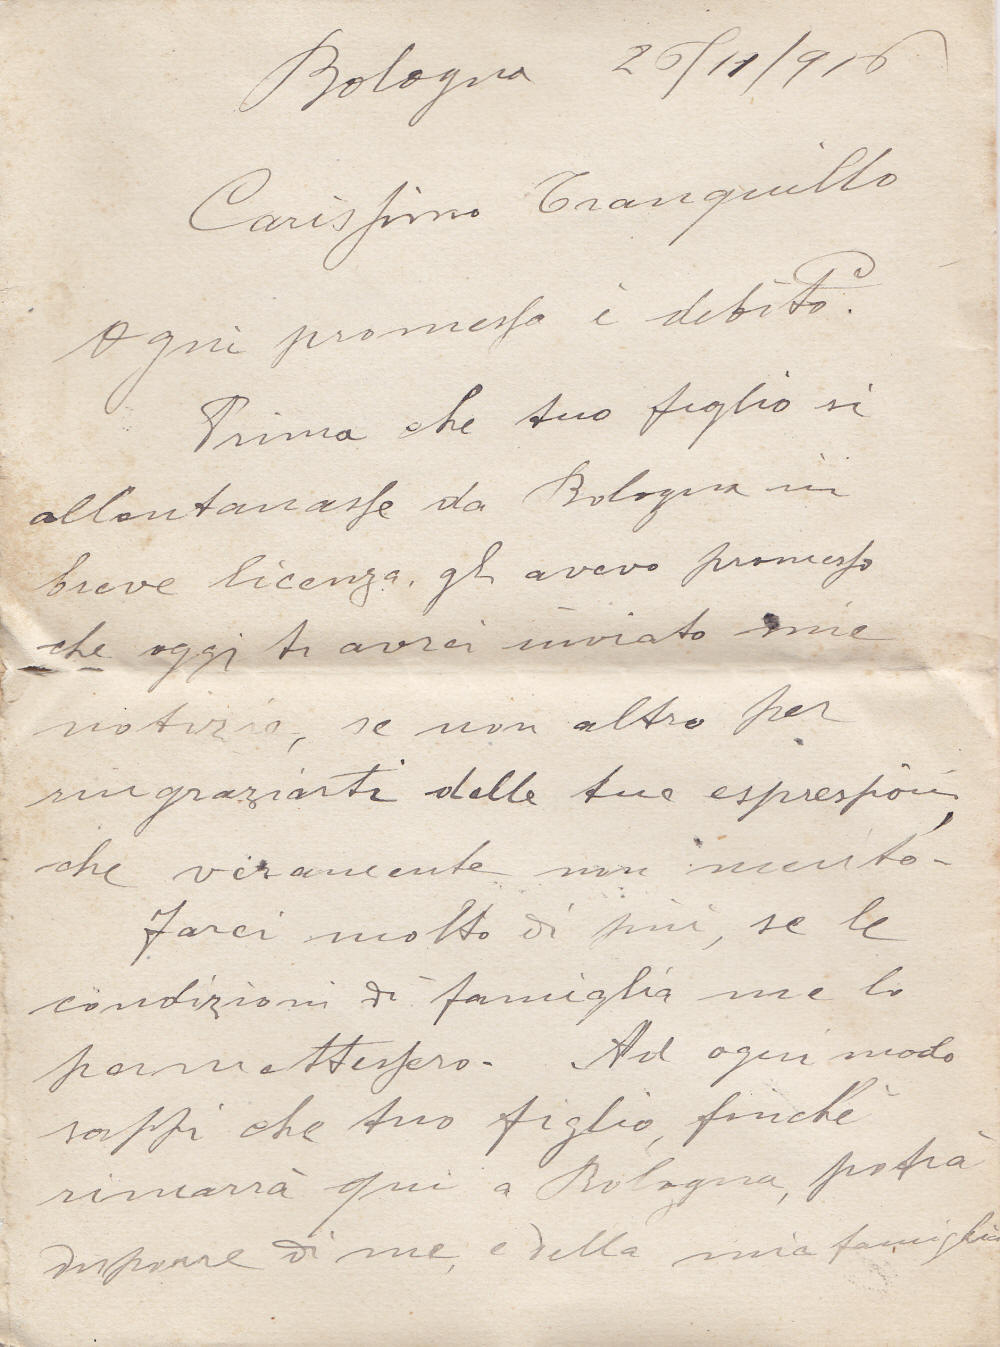 Bologna 26/11/916
Carissimo Tranquillo
Ogni promessa è debito.
Prima che tuo figlio si
allontanasse da Bologna in
breve licenza, gli avevo promesso
che oggi ti avrei inviato mie
notizie, se non altro per
ringraziarti delle tue espressioni,
che veramente non merito -
Farei molto di più, se le
condizioni di famiglia me lo
permettessero - Ad ogni modo
sappi che tuo figlio, finchè
rimarrà qui a Bologna, potrà
disporre di me, e della mia famiglia